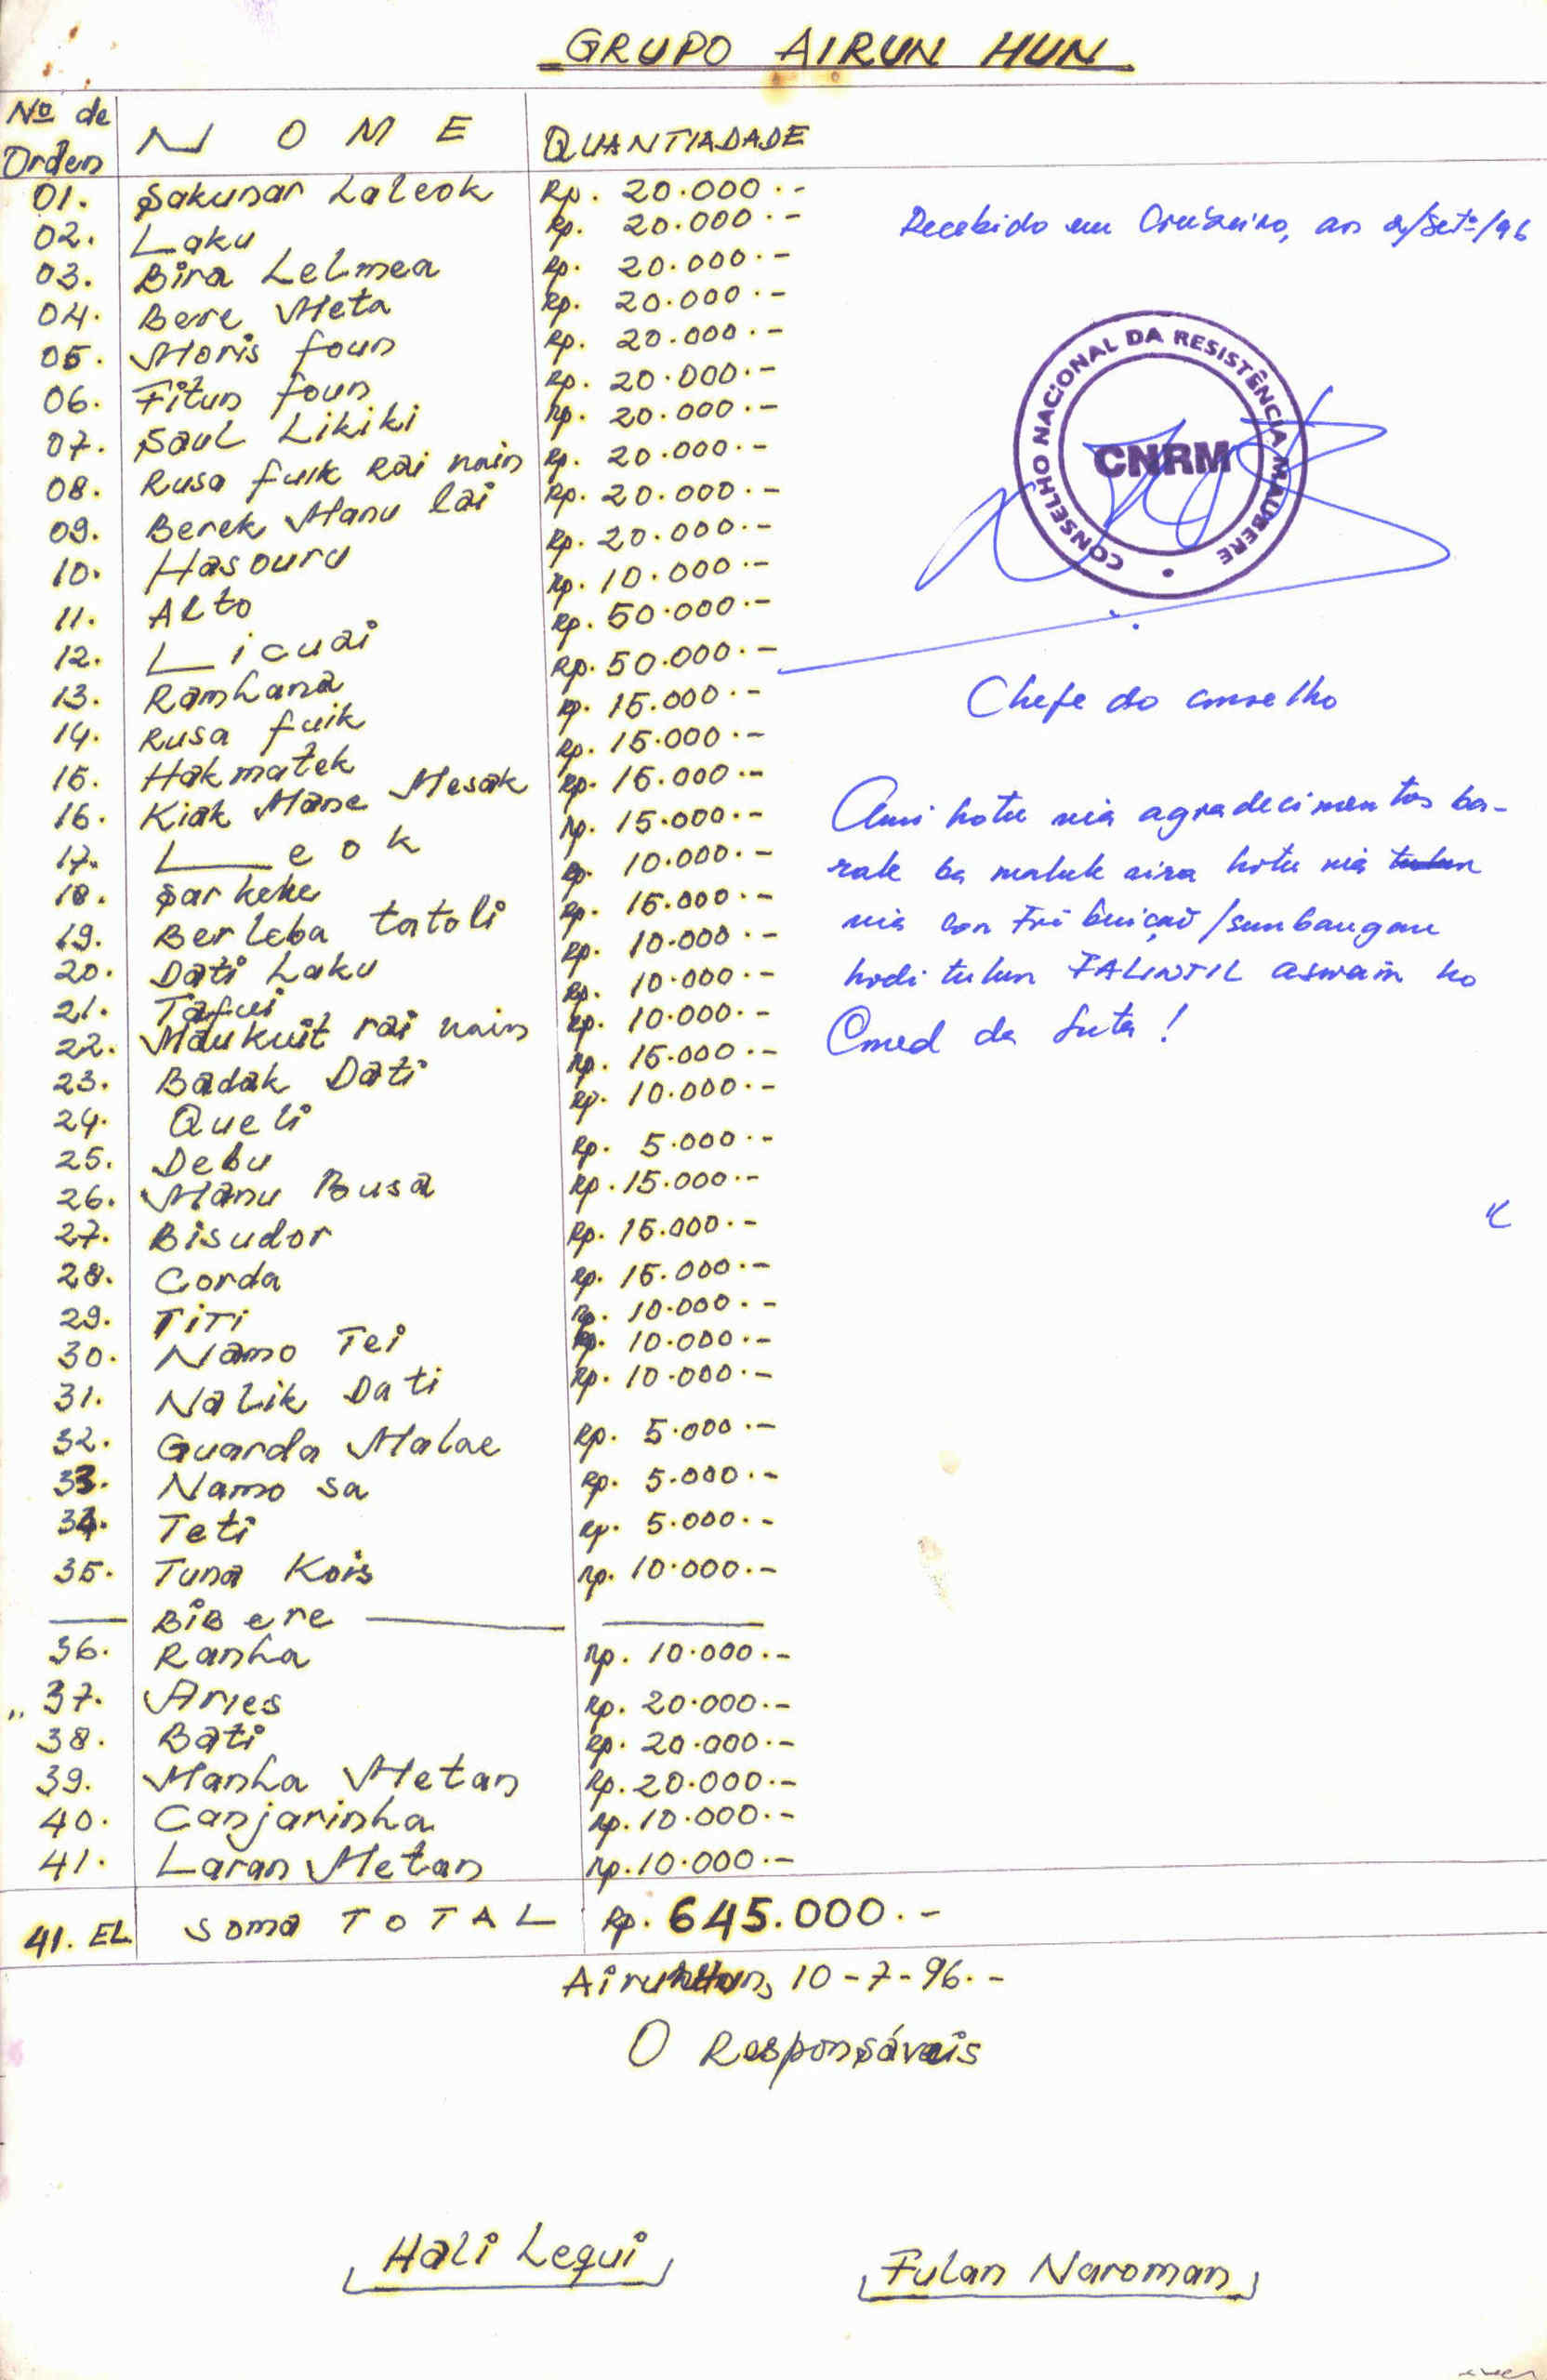 GRUPO AIRUN HUN
Nº de Orden NOME QUANTIADADE
01. Sakunar Laleok Rp. 20.000.-
02. Laku Rp. 20.000.-
03. Bira Lelmea Rp. 20.000.-
04. Bere Meta Rp. 20.000.-
05. Moris foun Rp. 20.000.-
06. Fitun foun Rp. 20.000.-
07. Saul Likiki Rp. 20.000.-
08. Rusa fuik Rai nain Rp. 20.000.-
09. Berek Manu lai Rp. 20.000.-
10. Hasouru Rp. 20.000.-
11. Alto Rp. 10.000.-
12. Licuai Rp. 50.000.-
13. Ramhana Rp. 50.000.-
14. Rusa fuik Rp. 15.000.-
15. Hakmatek Rp. 15.000.-
16. Kiak Mane Mesak Rp. 15.000.-
17. Leok Rp. 15.000.-
18. Sarkeke Rp. 10.000.-
19. Berleba tatoli Rp. 15.000.-
20. Dati Laku Rp. 10.000.-
21. Tafui Rp. 10.000.-
22. Maukuit rai nain Rp. 10.000.-
23. Badak Dati Rp. 15.000.-
24. Queli Rp. 10.000.-
25. Debu Rp. 5.000.-
26. Manu Busa Rp. 15.000.-
27. Bisudor Rp. 15.000.-
28. Corda Rp. 15.000.-
29. TiTi Rp. 10.000.-
30. Namo Tei Rp. 10.000.-
31. Nalik Dati Rp. 10.000.-
32. Guarda Malae Rp. 5.000.-
33. Namo sa Rp. 5.000.-
34. Teti Rp. 5.000.-
35. Tuna Kois Rp. 10.000.-
— BiBere — —
36. Ranha Rp. 10.000.-
" 37. Aries Rp. 20.000.-
38. Bati Rp. 20.000.-
39. Manha Metan Rp. 20.000.-
40. Canjarinha Rp. 10.000.-
41. Laran Metan Rp. 10.000.-
41. EL soma TOTAL Rp. 645.000.-
Recebido em Cruzeiro, aos 2/Setº/96
CONSELHO NACIONAL DA RESISTÊNCIA MAUBERE
CNRM
Chefe do conselho
Ami hotu nia agradecimentos ba-
rak ba maluk sira hotu nia tulun
nia contribuição/sunbangan
hodi tulun FALINTIL aswain ho
Cmed da Luta!
AirunHun, 10-7-96.-
O Responsáveis
Hali Lequi
Fulan Naroman